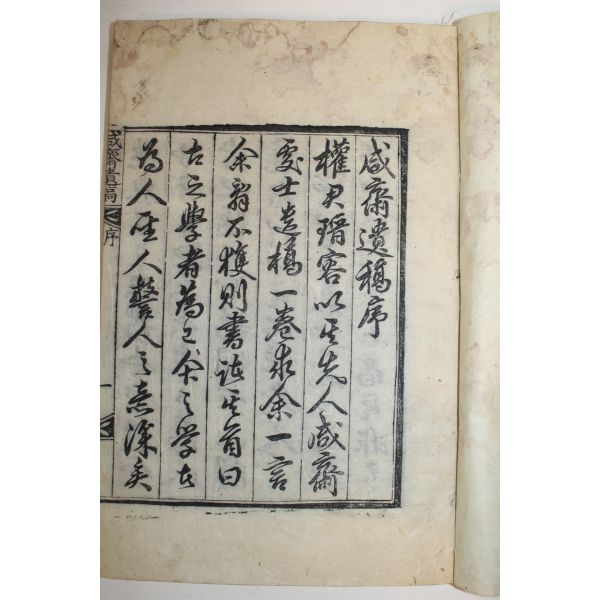 咸齋遺稿序
權君瑨容以其先人咸齋
處士遺稿一卷求余一言
余辭不獲則書諸其首曰
古之學者為己今之學者
為人聖人警人之意深矣
咸齋遺稿
序
一